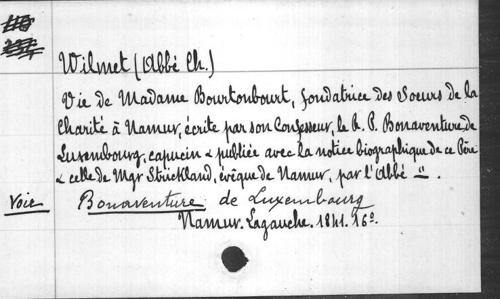 Wilmet (Abbé Ch.)
Vie de Madame Bourtonbourt, fondatrice des Soeurs de la
Charité à Namur, écrite par son Confesseur, le R. P. Bonaventure de
Luxembourg, capucin & publiée avec la notice biographique de ce Père
& celle de Mgr Strickland, évêque de Namur, par l'Abbé = .
Voir Bonaventure de Luxembourg
Namur. Lagauche. 1841. 16°.